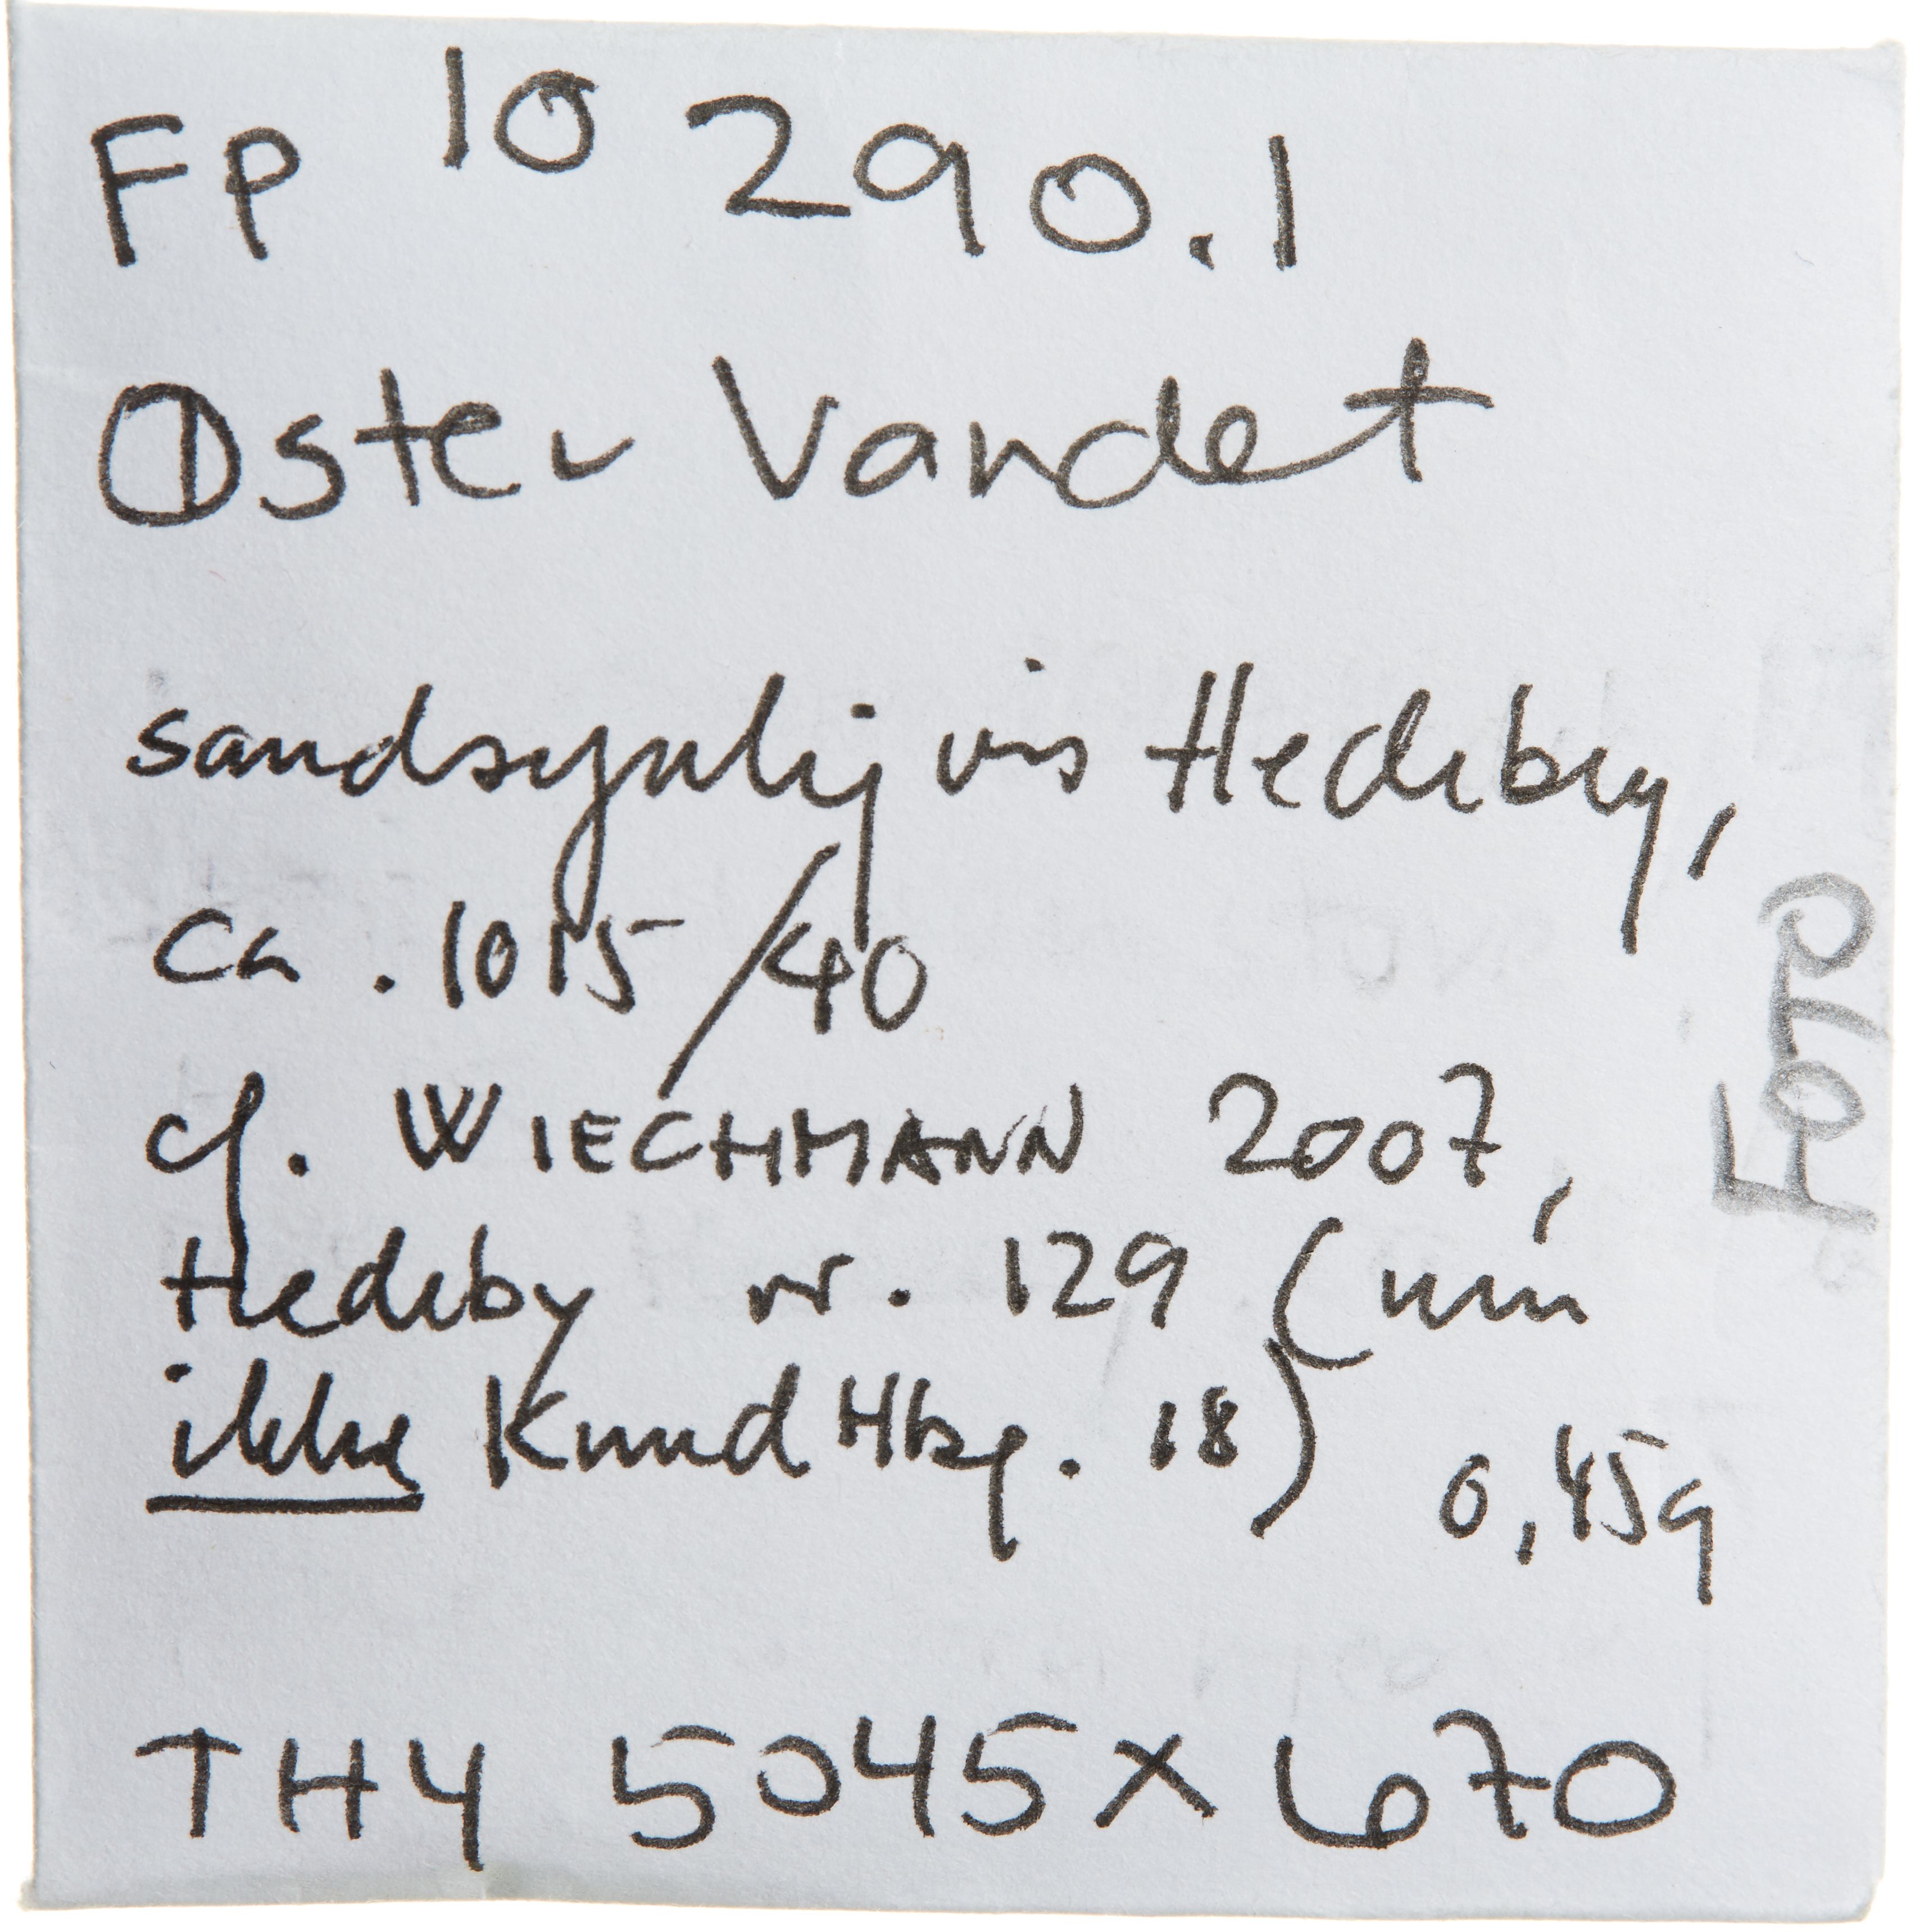 FP 10 290.1
Øster Vandet
sandsynligvis Hedeby,
ca. 1015/40
cf. WIECHMANN 2007,
Hedeby nr. 129 (men
ikke Knud Hbg. 18)
0,45g
THY 5045x670
FOTO